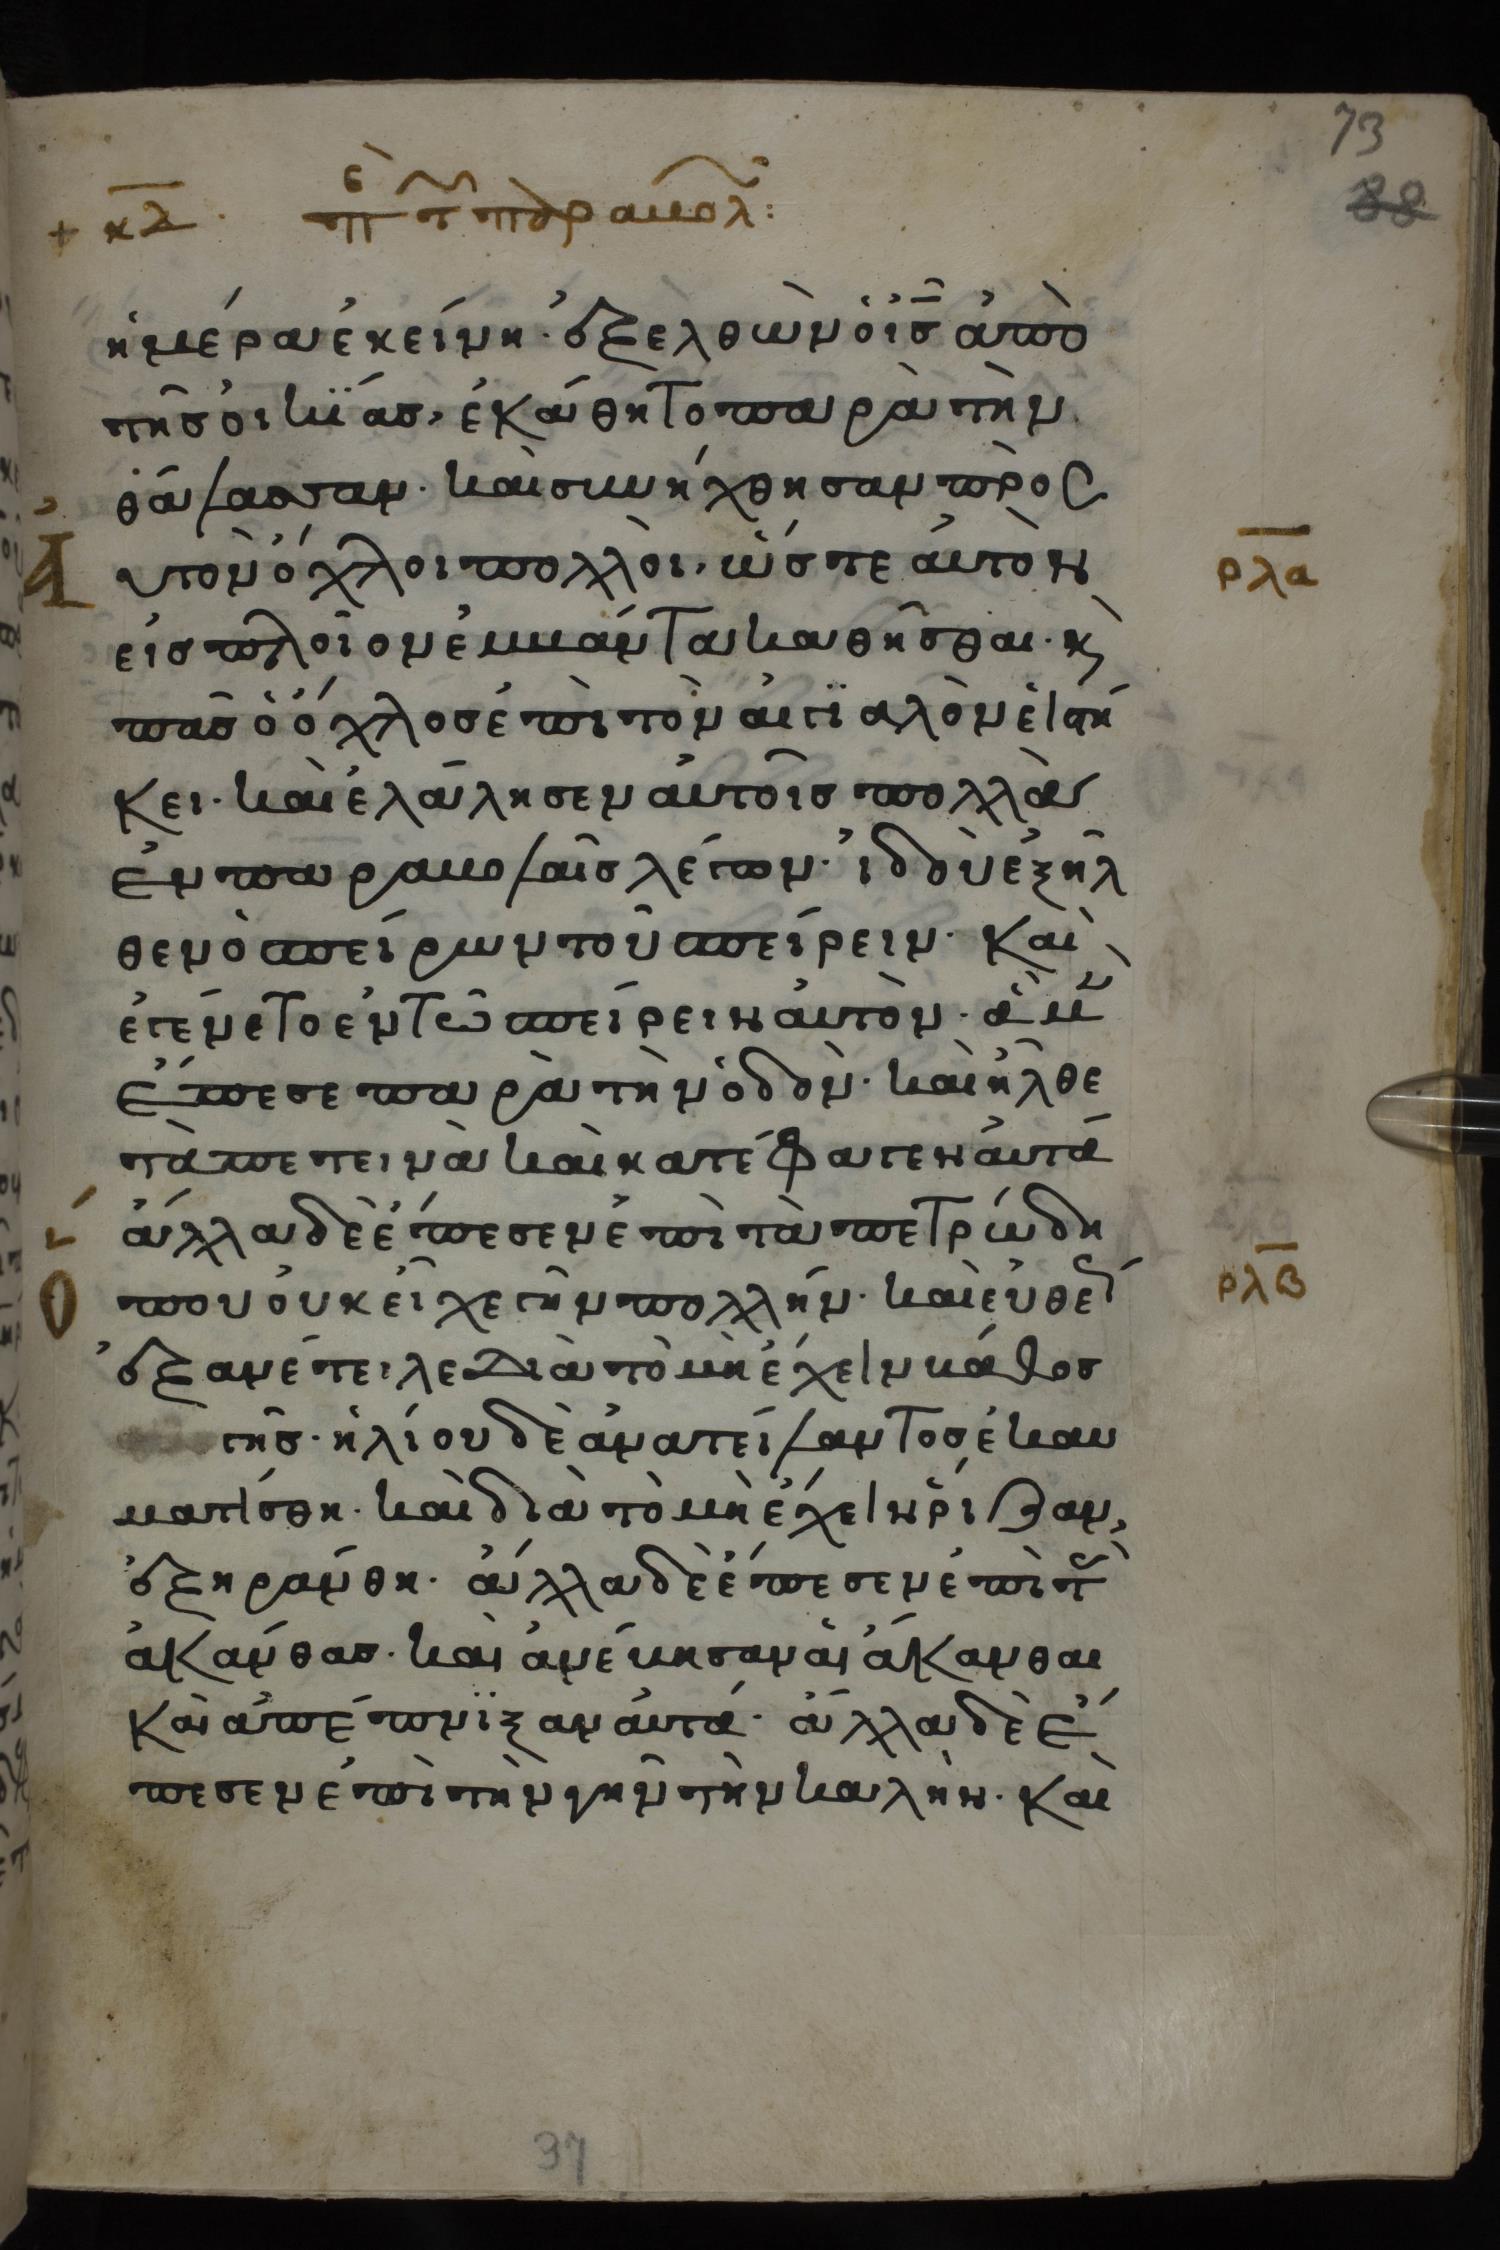 73
88
+ κδ. περὶ τῶν παραβολῶν:
ἡμέρα ἐκείνη· ἐξελθὼν ὁ ἰς ἀπὸ
τῆς οἰκΐας, ἐκάθητο παρὰ τὴν
θάλασσαν· καὶ συνήχθησαν πρὸς
Ἀυτὸν ὄχλοι πολλοὶ, ὥστε ἀυτὸν ρλα
εἰς πλοῖον ἐμβάντα καθῆσθαι· κ
πᾶς ὁ ὄχλος ἐπὶ τὸν αἰγϊαλὸν εἱστή
κει· καὶ ἐλάλησεν αὐτοῖς πολλὰ
ἐν παραβολαῖς λέγων· ἰδοὺ ἐξῆλ
θεν ὁ σπείρων τοῦ σπείρειν· καὶ
ἐγένετο ἐν τῶ σπείρειν αὐτὸν· ἃ μ
ἔπεσε παρὰ τὴν ὁδὸν· καὶ ἦλθε
τὰ πετεινὰ καὶ κατέφαγεν ἀυτά
ἄλλα δὲ ἔπεσεν ἐπὶ τὰ πετρώδη
Ὅπου οὐκ εἶχε γῆν πολλήν· καὶ εὐθέ ρλβ
ἐξανέτειλε διὰ τὸ μὴ ἔχειν βάθος
γῆς· ἡλίου δὲ ἀνατείλαντος ἐκαυ
ματίσθη· καὶ διὰ τὸ μὴ ἔχειν ῥίζαν,
ἐξηράνθη· ἄλλα δὲ ἔπεσεν ἐπὶ τ
ἀκάνθας· καὶ ἀνέβησαν αἱ ἄκανθαι
καὶ ἀπέπνϊξαν ἀυτά· ἄλλα δὲ ἔ
πεσεν ἐπὶ τὴν γῆν τὴν καλὴν· καὶ
37